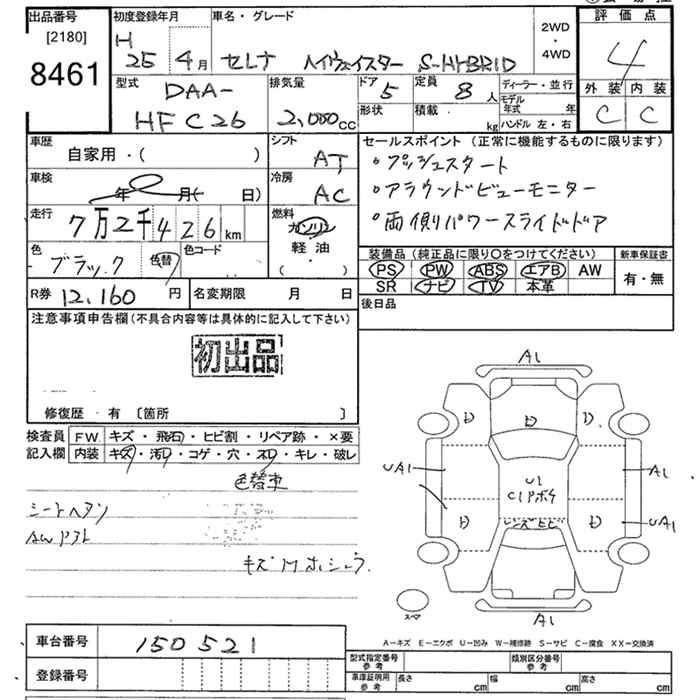 出品番号
[2180]
8461
初度登録年月
H
25 4月
車名・グレード
セレナ ハイウェイスター S-HYBRID
2WD
・
4WD
評価点
4
外装 内装
C C
型式
DAA-
HFC26
排気量
2,000cc
ドア
5
定員
8人
形状
積載
kg
ディーラー・並行
モデル年式 年
ハンドル 左・右
車歴
自家用・( )
シフト
AT
車検
年 月( 日)
冷房
AC
走行
7万2千426km
燃料
ガソリン
軽油
( ・ )
色
ブラック
色替
色コード
R券 12,160円
名変期限 月 日
セールスポイント(正常に機能するものに限ります)
・プッシュスタート
・アラウンドビューモニター
・両側パワースライドドア
装備品(純正品に限り〇をつけてください)
PS PW ABS エアB AW
SR ナビ TV 本革
新車保証書
有・無
後日品
注意事項申告欄(不具合内容等は具体的に記入して下さい)
初出品
修復歴・有 [箇所 ]
検査員
記入欄
FW. キズ・飛石・ヒビ割・リペア跡・×要
内装 キズ・汚レ・コゲ・穴・スレ・キレ・破レ
色替車
シートヘタリ
キズ
A1
D D D
UA1
U1
C1アホ
A1
D D
UA1
A1
スペア
A-キズ E-エクボ U-凹み W-補修跡 S-サビ C-腐食 XX-交換済
車台番号 150521
登録番号
型式指定番号
参考
類別区分番号
参考
車庫証明用
参考
長さ cm
幅 cm
高さ cm